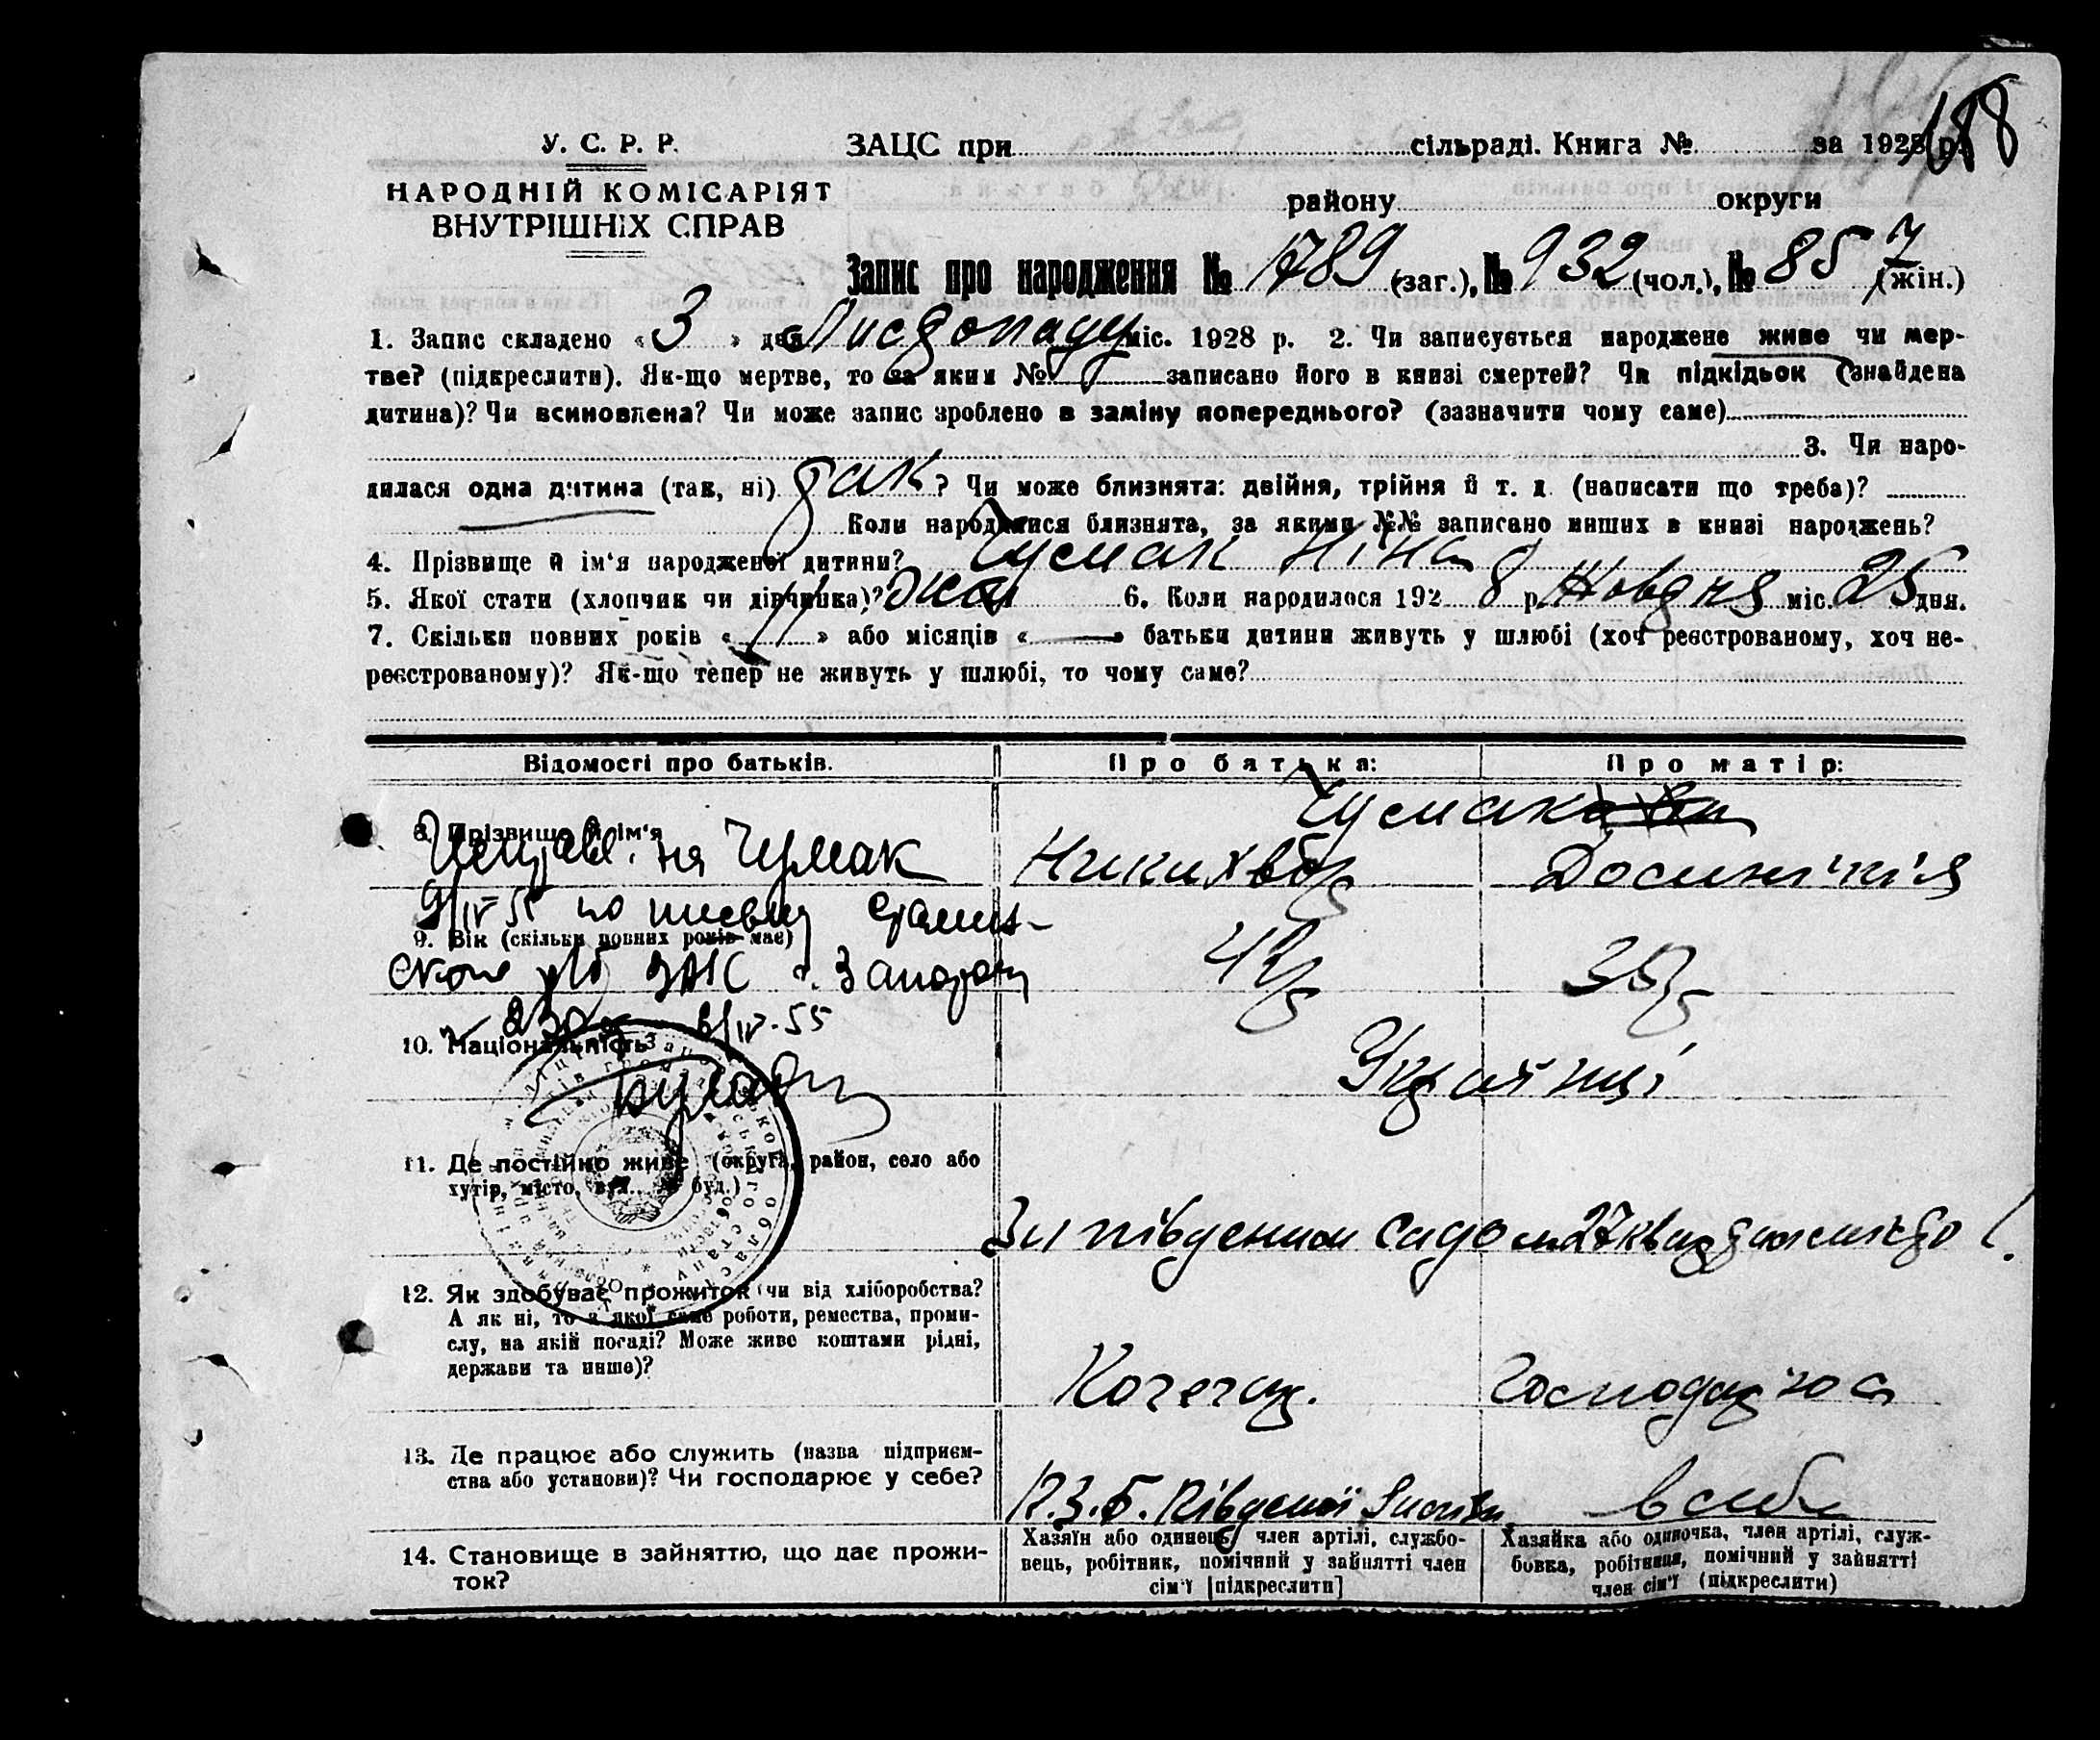 188
У. С. Р. Р.
НАРОДНІЙ КОМІСАРІЯТ
ВНУТРІШНІХ СПРАВ
ЗАЦС при сільраді. Книга № за 1928 р.
району округи
Запис про народження № 1789 (заг.), № 932 (чол.), № 857 (жін.)
1. Запис складено « 3 » дня Листопаду міс. 1928 р. 2. Чи записується народжене живе чи мер-
тве? (підкреслити). Як-що мертве, то за яким № записано його в книзі смертей? Чи підкідьок (знайдена
дитина)? Чи всиновлена? Чи може запис зроблено в заміну попереднього? (зазначити чому саме)
3. Чи наро-
дилася одна дитина (так, ні) так ? Чи може близнята: двійня, трійня й т. д. (написати що треба)?
Коли народилися близнята, за якими №№ записано инших в книзі народжень?
4. Прізвище й ім'я народженої дитини? Чумак Ніна
5. Якої стати (хлопчик чи дівчинка)? жін 6. Коли народилося 192 8 р. Жовтня міс. 25 дня.
7. Скільки повних років « 11 » або місяців « — » батьки дитини живуть у шлюбі (хоч реєстрованому, хоч не-
реєстрованому)? Як-що тепер не живуть у шлюбі, то чому саме?
Відомості про батьків. Про батька: Про матір:
8. Прізвище й ім'я
Чумак
Никихвор Досинікія
Исправ. на Чумак
9/IV 55 по письму
9. Вік (скільки повних років має)
ЗАГС г. Запорож
42 35
№ 6/IV-55
10. Національність
Українці
11. Де постійно живе (округа, район, село або
хутір, місто, вул. № буд.)
За південим садом 27 кварт
12. Як здобуває прожиток (чи від хліборобства?
А як ні, то з якої саме роботи, ремества, проми-
слу, на якій посаді? Може живе коштами рідні,
держави та инше)?
Кочегар. Господарюа
13. Де працює або служить (назва підприєм-
ства або установи)? Чи господарює у себе?
Південої в себе
14. Становище в зайняттю, що дає прожи-
ток?
Хазяїн або одинець, член артілі, службо-
вець, робітник, помічний у зайнятті член
сім'ї [підкреслити]
Хазяйка або одиночка, член артілі, служ-
бовка, робітниця, помічний у зайнятті
член сім'ї (підкреслити)